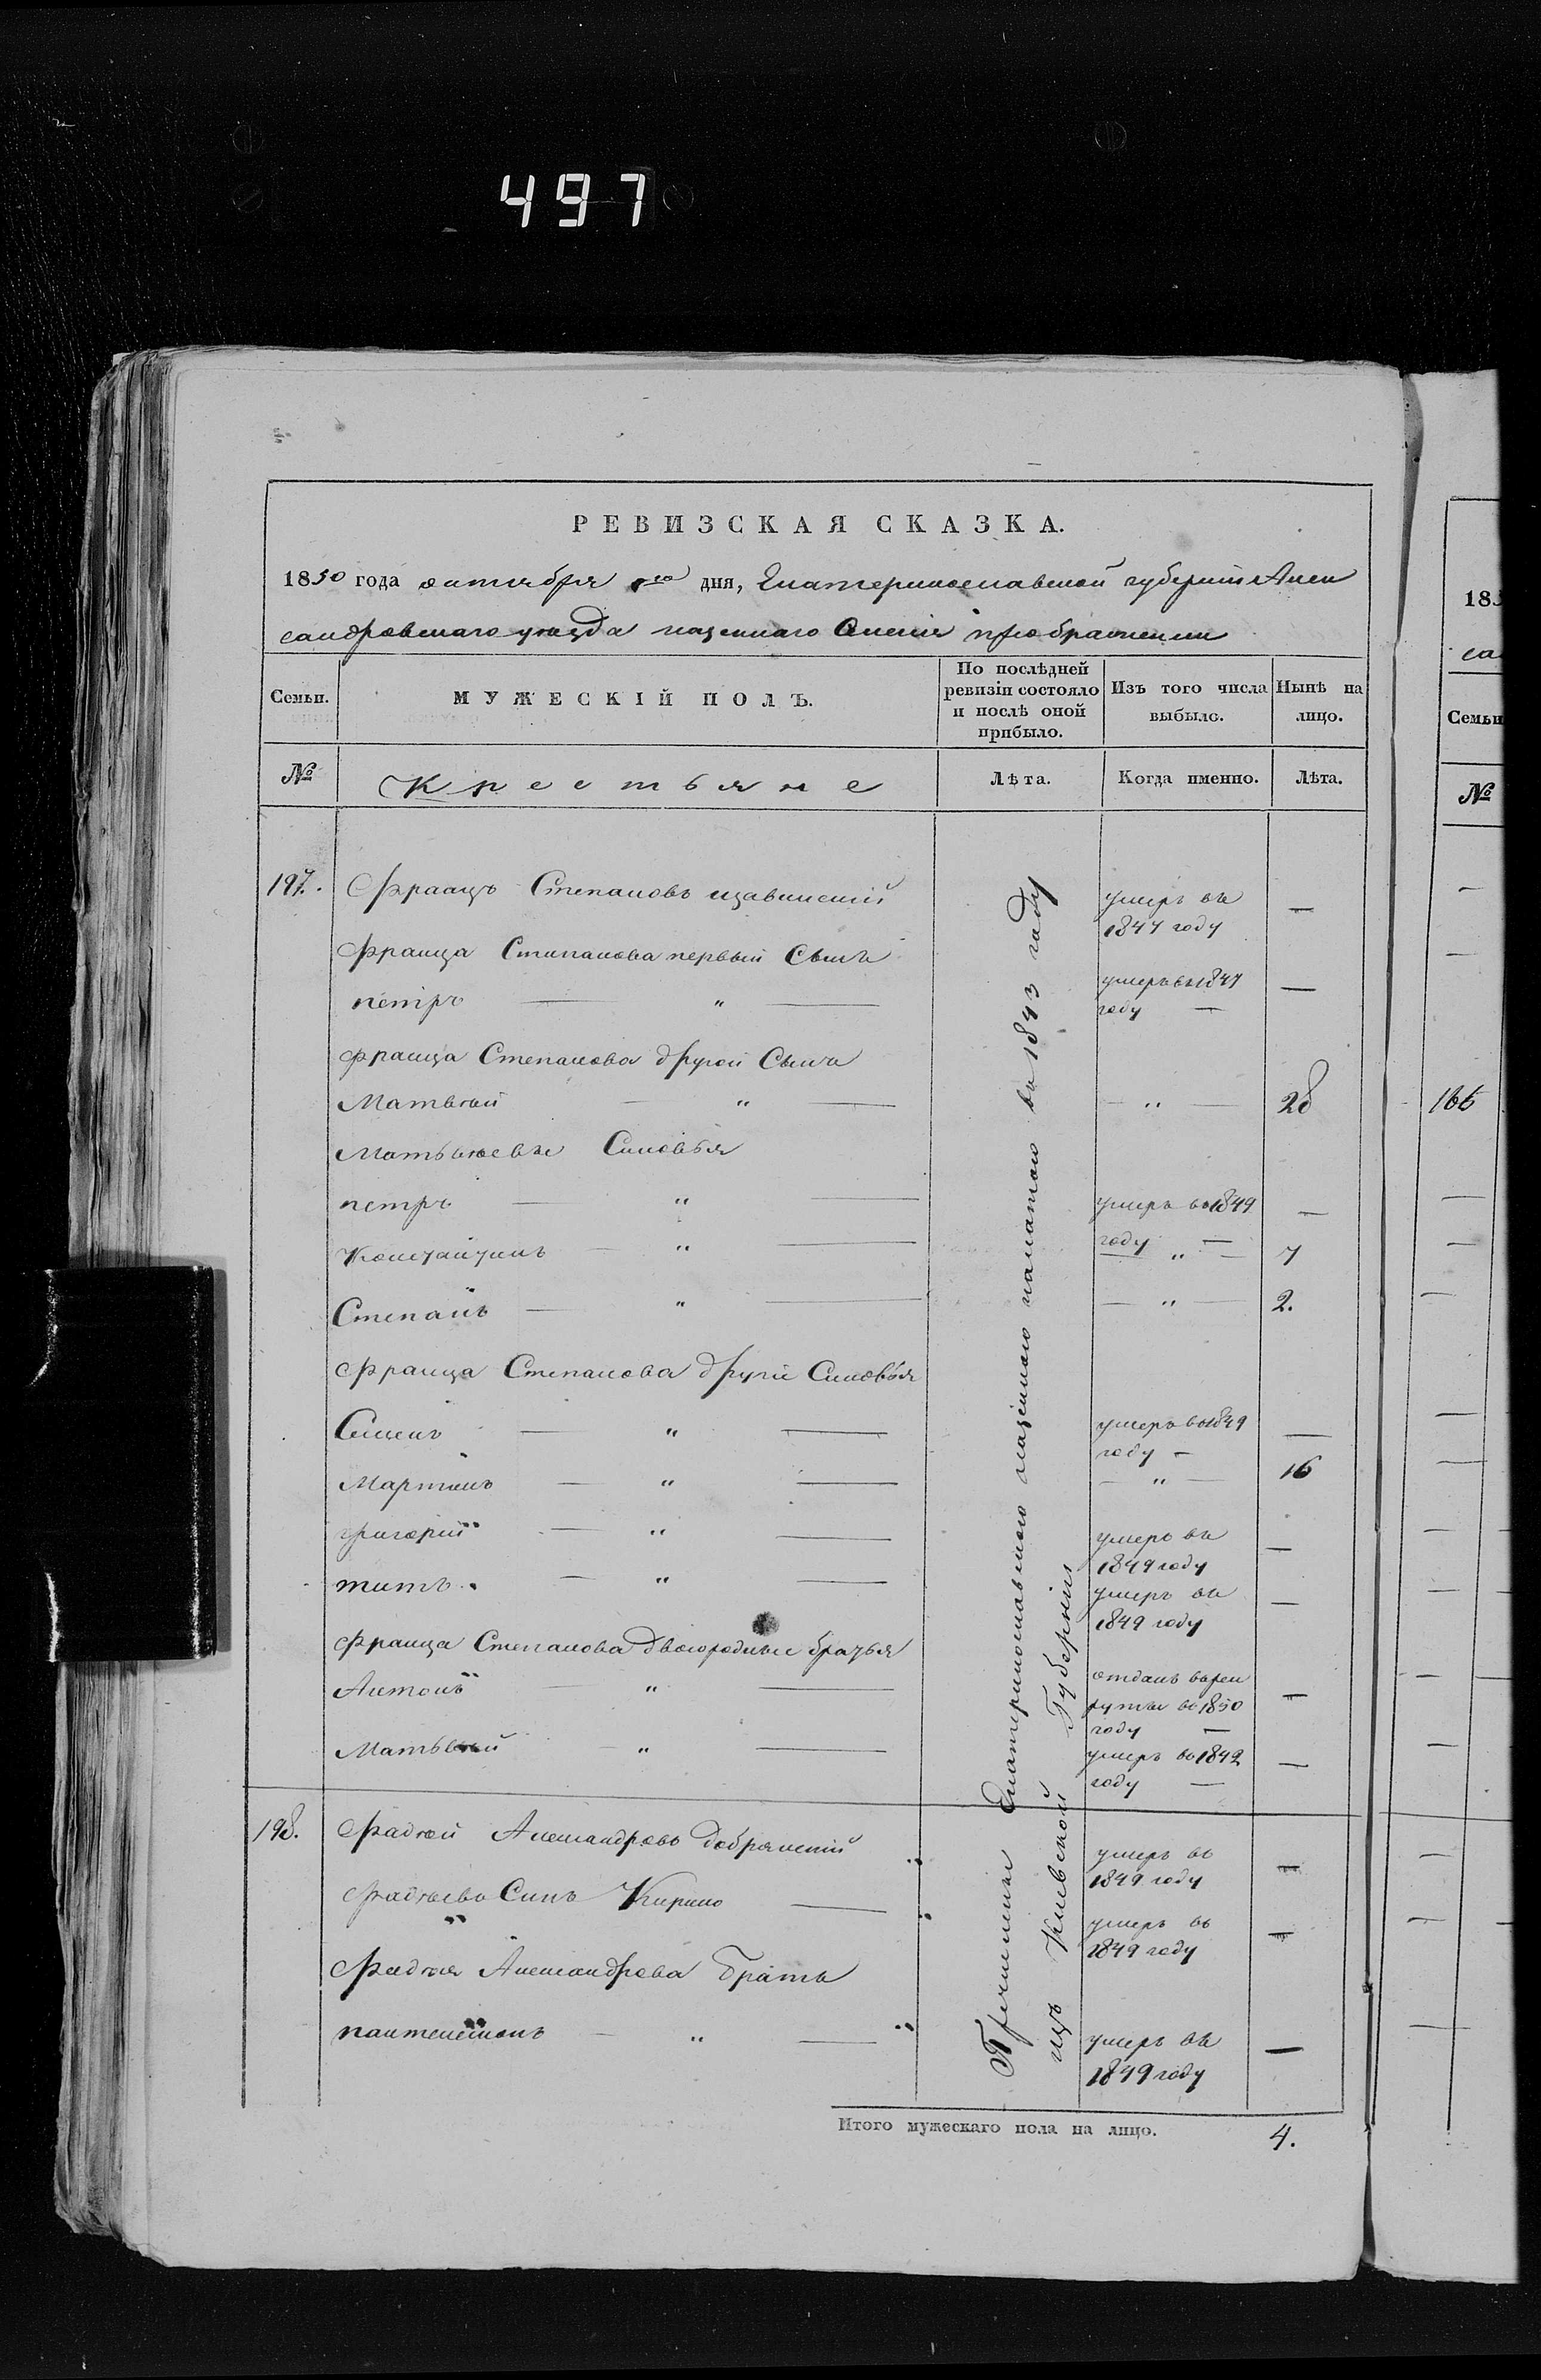 497
РЕВИЗСКАЯ СКАЗКА.
1850 года октября дня, Екатеринославской губернiи Алек
сандровскаго уѣзда казеннаго Селенія преображенки
Семьи.
МУЖЕСКІЙ ПОЛЪ.
По послѣдней
ревизіи состояло
и послѣ оной
прибыло.
Изъ того числа
выбыло.
Нынѣ на
лицо.
№
Крестьяне
Лѣта.
Когда именно.
Лѣта.
197. Францъ Степановъ умеръ въ —
1847 году
Франца Степанова первый Сынъ
петръ — " — умеръ въ 1847 —
году —
Франца Степанова другой Сынъ
Матвѣй — " — — " — 28
Матвѣевы Синовья
петръ — " — умеръ въ 1849 —
году —
Констайтинъ — " — — " — 7
Степанъ — " — — " — 2.
Франца Степанова другіе Синовья
Семенъ — " — умеръ въ 1849 —
году —
Мартинъ — " — — " — 16
григорій — " — умеръ въ —
1849 году
титъ — " — умеръ въ —
1849 году
Франца Степанова двоюродные братья
Антонъ — " — отданъ въ рек —
руты въ 1850
году —
Матвѣй — " — умеръ въ 1842 —
году —
198. Фадѣй Александровъ добрянскій умеръ въ —
1849 году
Фадѣевъ Синъ Кирило — умеръ въ —
1849 году
Фадѣя Александрова Братъ
пантелеймонъ — " — умеръ въ —
1849 году
Причислены Екатеринославскою казенною палатою въ 1843 году
изъ Кіевской Губерніи
Итого мужескаго пола на лицо. 4.
185
са
Семьи
№
166